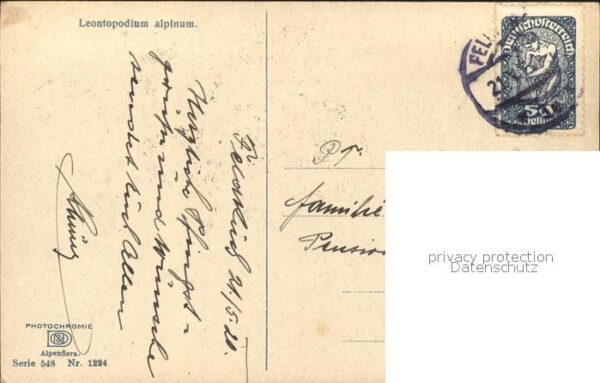 Leontopodium alpinum.
Feldkirch 21/5. 20.
Herzliche Pfingst-
grüße und Wünsche
sendet Euch Allen
Deutschösterreich
FEL
21
50
Pr.
Familie
Pension
privacy protection
Datenschutz
PHOTOCHROMIE
Alpenflora.
Serie 548 Nr. 1224